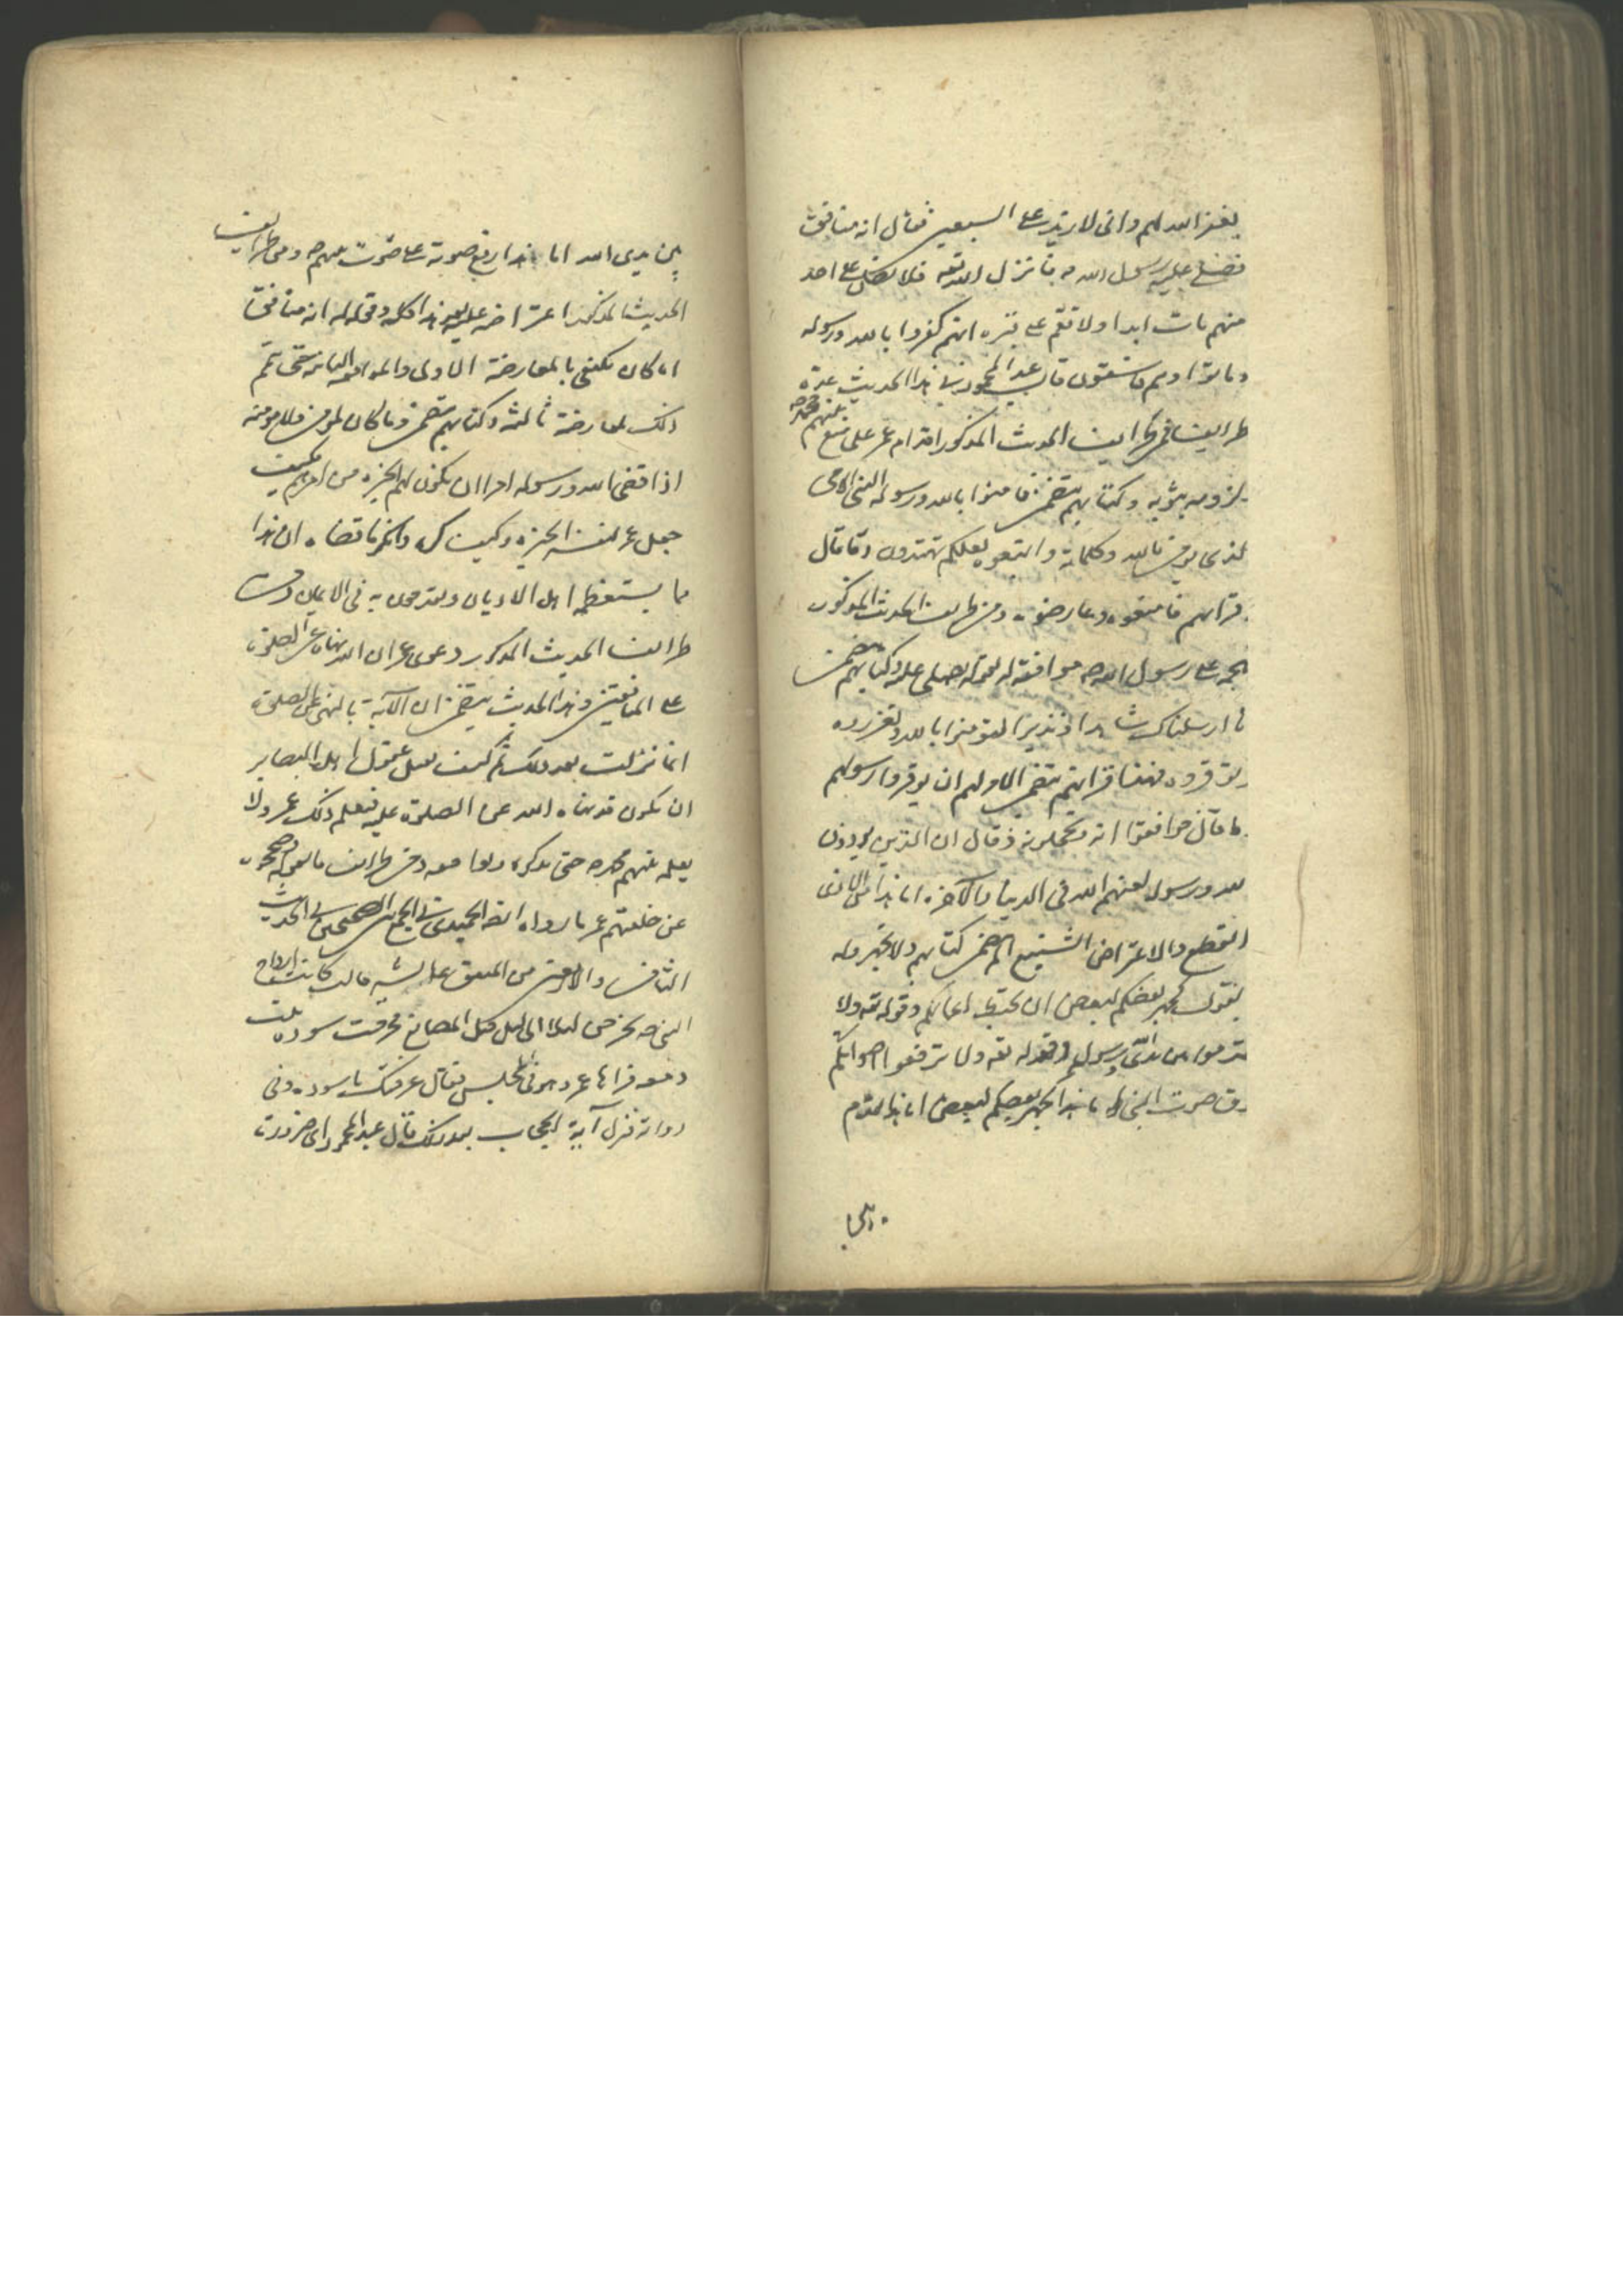 يغفر الله لهم واني لازيد على السبعين فقال انه منافق
فصلى عليه رسول الله ص فانزل الله تعه فلا تصل على احد
منهم مات ابدا ولا تقم على قبره انهم كفروا بالله ورسوله
وماتوا وهم فاسقون قال عبد المحمود في هذا الحديث عدة
طرايف فمن طرايف الحديث المذكور اقدام عمر على منع نبيهم محمد ص
ولزومه بثوبه وكتابهم يتضمن فامنوا بالله ورسوله النبي الامي
الذي يومن بالله وكلماته واتبعوه لعلكم تهتدون وقا قال
قرانهم فامنعوه وعارضوه ومن طرايف الحديث المذكور
على رسول الله ص موافقته له لقوله اتصلي عليه وكتابهم يتضمن
انا ارسلناك شاهدا ونذيرا لتؤمنوا بالله وتعزروه
وتوقروه فهذا قرانهم يتضمن ان يوقروا رسولهم
ما قال فقال ان الذين يوذون
الله ورسوله لعنهم الله في الدنيا والاخرة اما هذا من الاذى
الفظيع والاعتراض الشنيع الم يتضمن كتابهم ولا تجهروا له
بالقول كجهر بعضكم لبعض ان تحبط اعمالكم وقوله تعه ولا
تقدموا بين يدي الله ورسوله وقوله تعه ولا ترفعوا اصواتكم
فوق صوت النبي اما هذا كجهر بعضكم لبعض اما هذا تقدم
بين يدي الله اما هذا رفع صوته على صوت نبيهم ص ومن طرايف
الحديث المذكور اعتراضه عليه بعد هذا كله وقوله له انه منافق
اما كان يكتفي بالمعارضة الاولى والموافقة الثانية حتى تمم
ذلك بمعارضة ثالثة وكتابهم يتضمن وما كان لمومن ولا مومنة
اذا قضى الله ورسوله امرا ان يكون لهم الخيرة من امرهم فكيف
جعل عمر لنفسه الخيرة وكيف كره وانكر ما قضاه ان هذا
مما يستعظمه اهل الاديان ويقدحون به في الايمان ومن
طرايف الحديث المذكور دعوى عمر ان الله نهاه عن الصلوة
على المنافقين وهذا الحديث يتضمن ان الآية بالنهي عن الصلوة
انما نزلت بعد ذلك ثم كيف تقبل عقول اهل البصاير
ان يكون قد نهاه الله عن الصلوة عليه فيعلم ذلك عمر ولا
يعلمه نبيهم محمد ص حتى يذكره ومن طرايف ما
عن خليفتهم عمر ما رواه ايضا الحميدي في الجمع بين الصحيحين في الحديث
الثامن والاربعين من المتفق عليه عايشه قالت كانت ازواج
النبي ص يخرجن ليلا الى ليل قبل المصانع فخرجت سوده بنت
زمعه فراها عمر وهو في المجلس فقال عرفتك يا سوده وفي
رواية فنزل آية الحجاب بعد ذلك قال عبد المحمود اي ضرورة